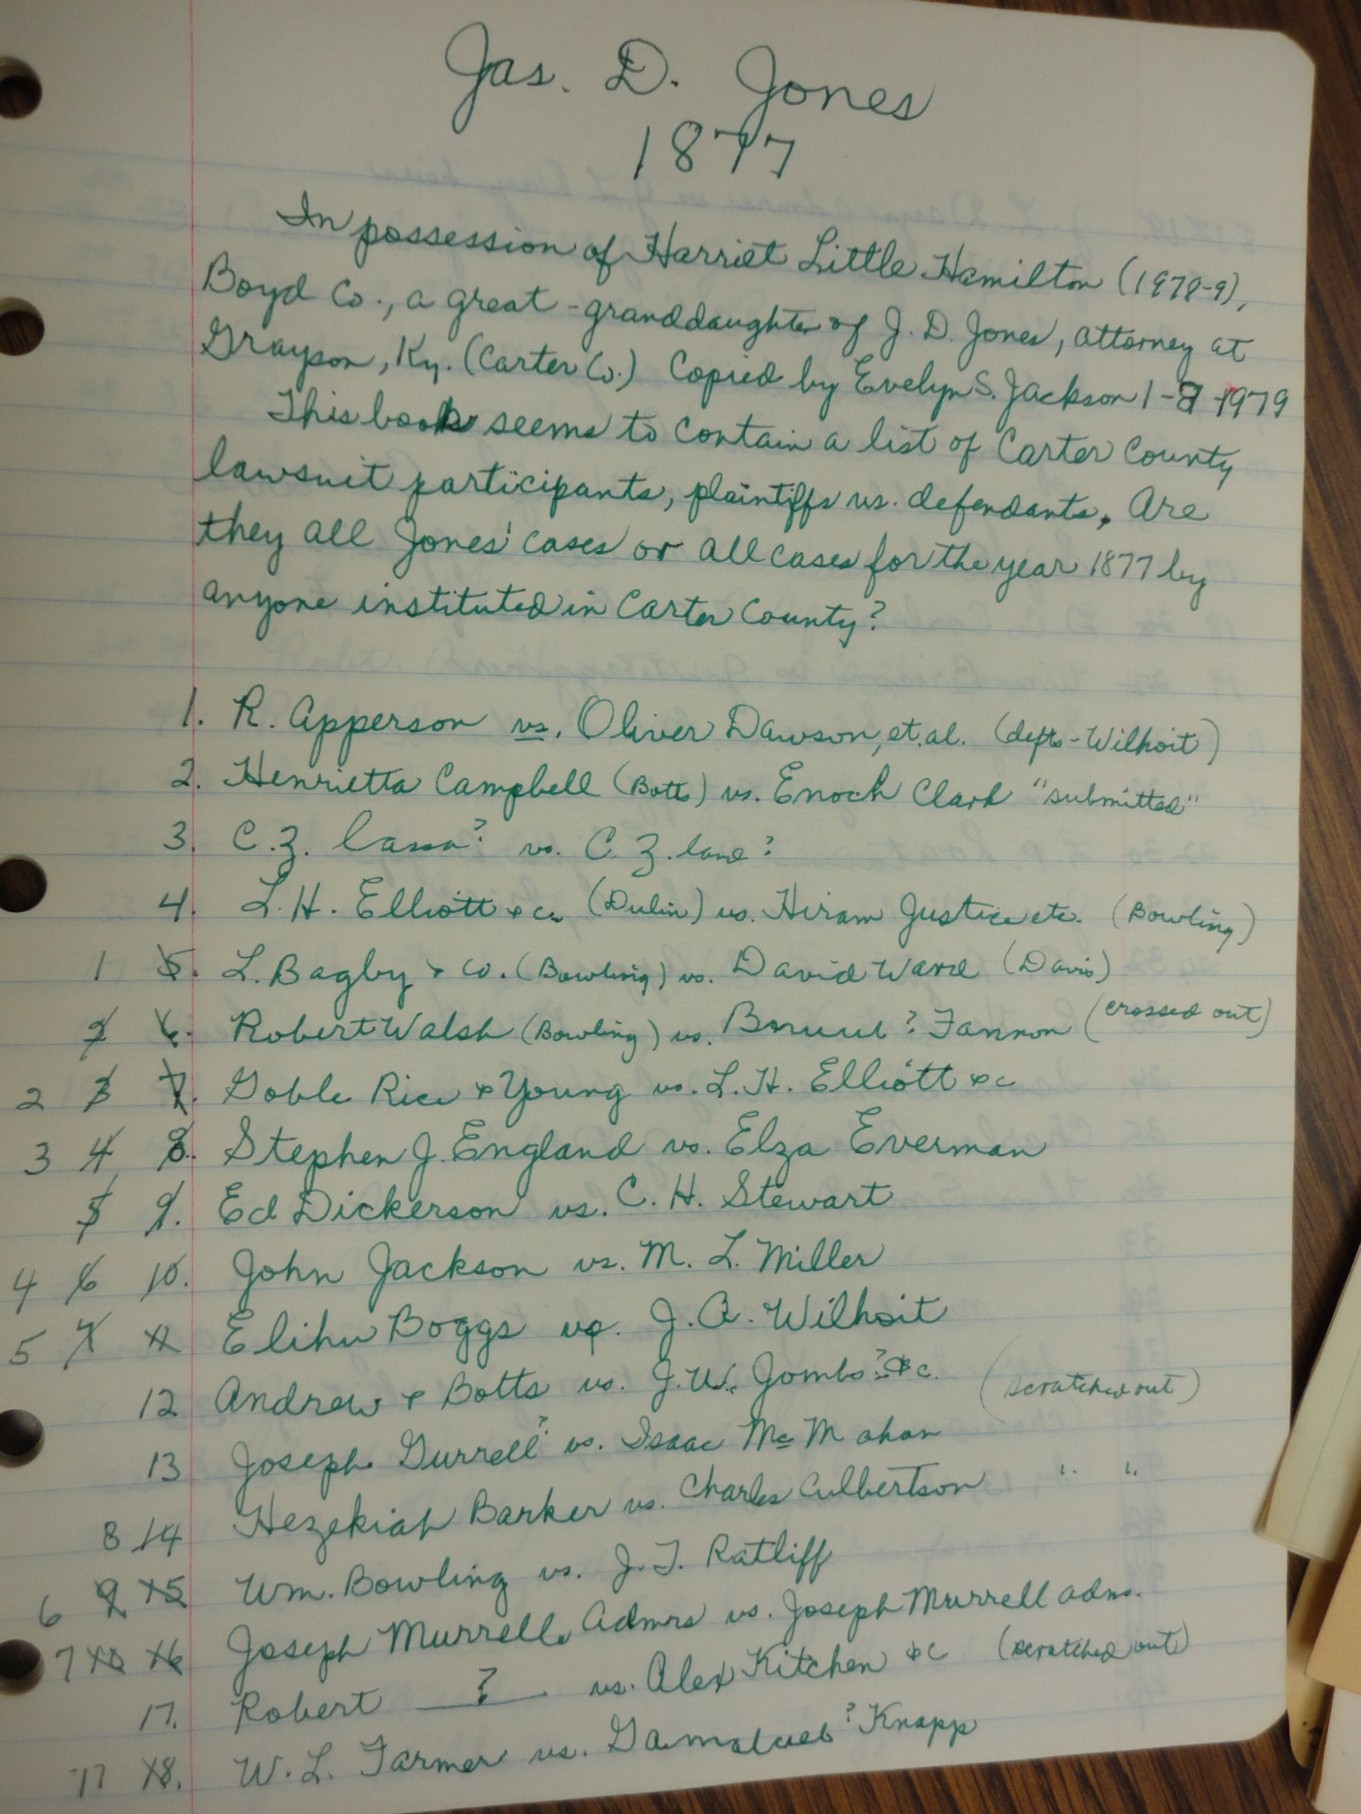 Jas. D. Jones
1877
In possession of Harriet Little Hamilton (1978-9),
Boyd Co., a great-granddaughter of J. D. Jones, attorney at
Grayson, Ky. (Carter Co.) Copied by Evelyn S. Jackson 1-8-1979
This book seems to contain a list of Carter County
lawsuit participants, plaintiffs vs. defendants. Are
they all Jones' cases or all cases for the year 1877 by
anyone instituted in Carter County?
1. R. Apperson vs. Oliver Dawson, et.al. (defts-Wilhoit)
2. Henrietta Campbell (Botts) vs. Enoch Clark "submitted"
3. C.Z. ? vs. C.Z. lane?
4. L.H. Elliott & c. (Dulin) vs. Hiram Justice etc. (Bowling)
1 5. L. Bagby & Co. (Bowling) vs. David Ward (Davis)
2 6. Robert Walsh (Bowling) vs. ? Fannon (crossed out)
2 3 7. Goble Rice & Young vs. L.H. Elliott &c
3 4 8. Stephen J. England vs. Elza Everman
5 9. Ed Dickerson vs. C. H. Stewart
4 6 10. John Jackson vs. M. L. Miller
5 7 11 Elihu Boggs vs. J. A. Wilhoit
12 Andrew & Botts vs. J.W. Jombs? &c. (scratched out)
13 Joseph Gurrell? vs. Isaac McMahan
8 14 Hezekiah Barker vs. Charles Culbertson " "
6 9 15 Wm. Bowling vs. J. T. Ratliff
7 10 16 Joseph Murrell Admrs vs. Joseph Murrell adms.
17. Robert ? vs. Alex Kitchen &c (scratched out)
18. W. L. Farmer vs. ? Knapp